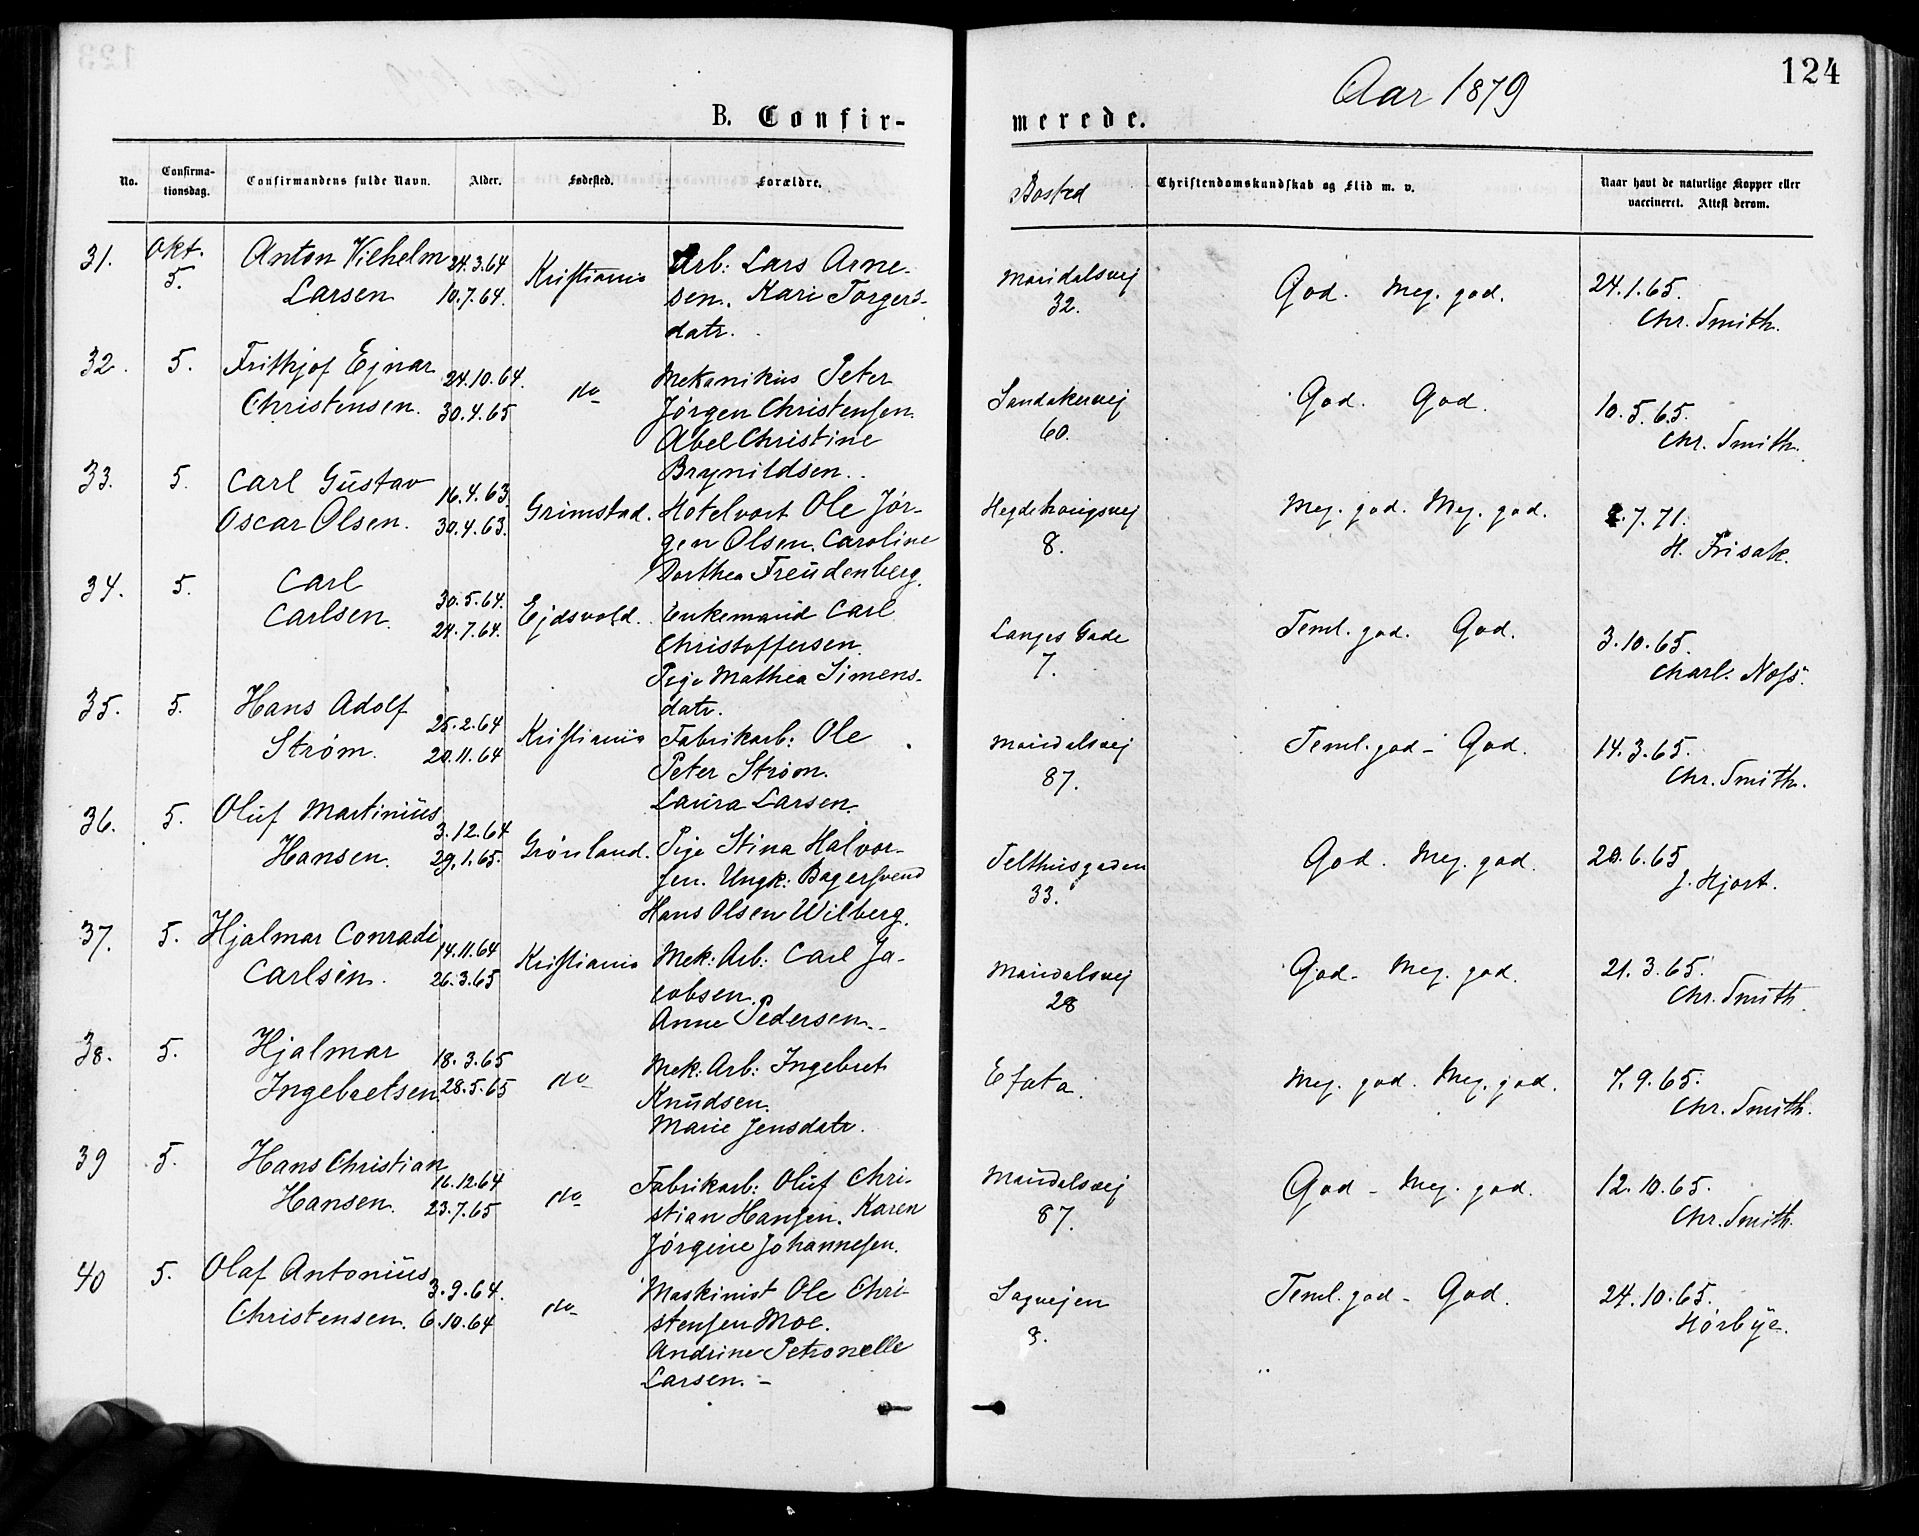 124
Aar 1879
B. Confir-
merede.
No.
Confirma-
tionsdag.
Confirmandens fulde Navn.
Alder.
Fødested.
Forældre.
Bosted
Christendomskundskab og Flid m. v.
Naar havt de naturlige Kopper eller
vaccineret. Attest derom.
31. Okt. Anton Vilhelm 24.3.64 Kristiania Arb: Lars Arne- Maridalsvej God. Meg. god. 24.1.65.
5. Larsen 10.7.64. sen. Kari Torgers- 32. Chr. Smith.
datr.
32. 5. Frithjof Ejnar 24.10.64. do Mekanikus Peter Sandakervej God. God. 10.5.65.
Christensen. 30.4.65 Jørgen Christensen. 60. Chr. Smith.
Abel Christine
Brynildsen.
33. 5. Carl Gustav 16.4.63. Grimstad. Hotelvert Ole Jør- Hegdehaugsvej Meg. god. Meg. god. 2.7.71.
Oscar Olsen. 30.4.63. gen Olsen. Caroline 8. H. Frisak.
Dorthea Freudenberg.
34. 5. Carl 30.5.64. Ejdsvold. Enkemand Carl Langes Gade Teml. god. God. 3.10.65.
Carlsen. 24.7.64. Christoffersen. 7. Charl. Noss.
Pige Mathea Simens-
datr.
35. 5. Hans Adolf 25.2.64 Kristiania Fabrikarb: Ole Maridalsvej Teml. god - God. 14.3.65.
Strøm. 20.11.64 Peter Strøm. 87. Chr. Smith.
Laura Larsen.
36. 5. Oluf Martinius 3.12.64 Grønland. Pige Stina Halvor- Telthusgaden God. Meg. god. 20.6.65
Hansen. 29.1.65. sen. Ungk: Bagersvend 33. J. Hjort.
Hans Olsen Wilberg.
37. 5. Hjalmar Conradi 14.11.64 Kristiania Mek: Arb: Carl Ja- Maridalsvej God - Meg. god. 21.3.65.
Carlsen. 26.3.65 cobsen. 28 Chr. Smith.
Anne Pedersen.
38. 5. Hjalmar 18.3.65 do Mek: Arb: Ingebret Efata. Meg. god. Meg. god. 7.9.65.
Ingebretsen 28.5.65 Knudsen. Chr. Smith.
Marie Jensdatr.
39 5. Hans Christian 16.12.64 do Fabrikarb: Oluf Chri- Maridalsvej God - Meg. god. 12.10.65.
Hansen. 23.7.65 stian Hansen. Karen 87. Chr. Smith.
Jørgine Johannesen.
40 5. Olaf Antonius 3.9.64. do Maskinist Ole Chri- Sagvejen Teml. god - God. 24.10.65.
Christensen. 6.10.64 stensen Moe. 8. Hørbye.
Andrine Petronelle
Larsen. -